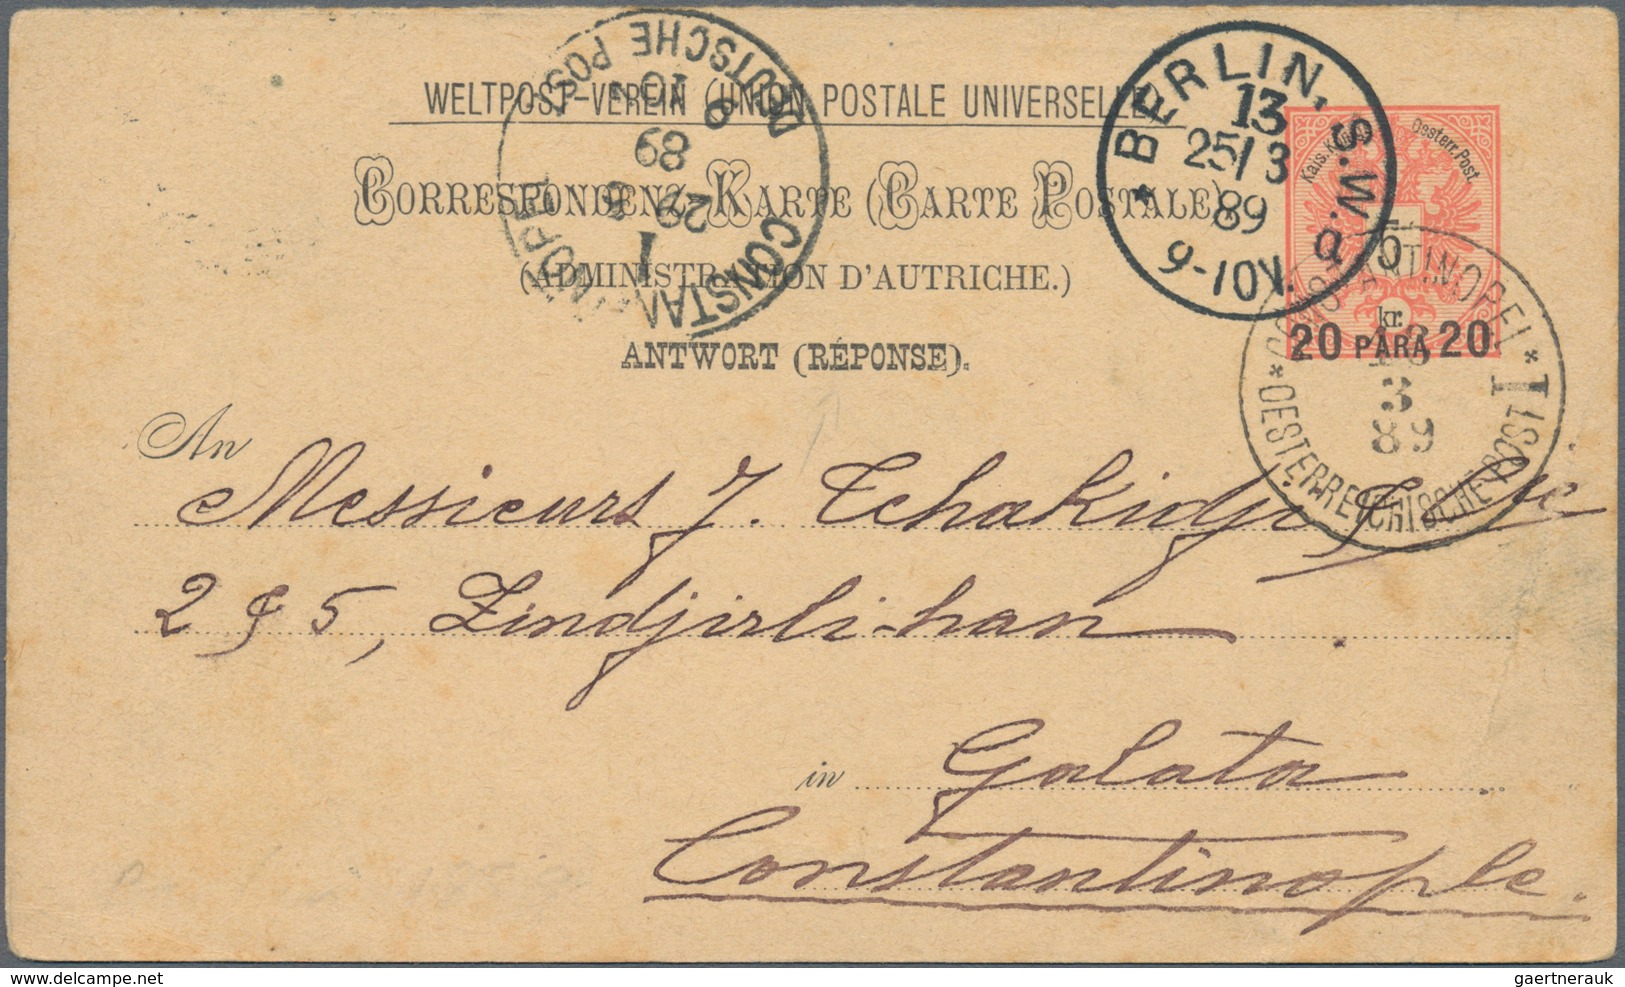 WELTPOST-VEREIN (UNION POSTALE UNIVERSELLE)
CORRESPONDENZ-KARTE (CARTE POSTALE)
(ADMINISTRATION D'AUTRICHE.)
ANTWORT (RÉPONSE).
CONSTANTINOPEL 1
DEUTSCHE POST
29
89
BERLIN, S.W.
13
25/3
89
9-10V.
Kais. Königl. Oesterr. Post.
5
kr.
20 PARA 20
CONSTANTINOPEL I
3
89
* OESTERREICHISCHE POST *
An Messieurs J. Tchakidji & Cie
2 & 5, Zindjirli-han
in Galata
Constantinople.
gaertnerauk